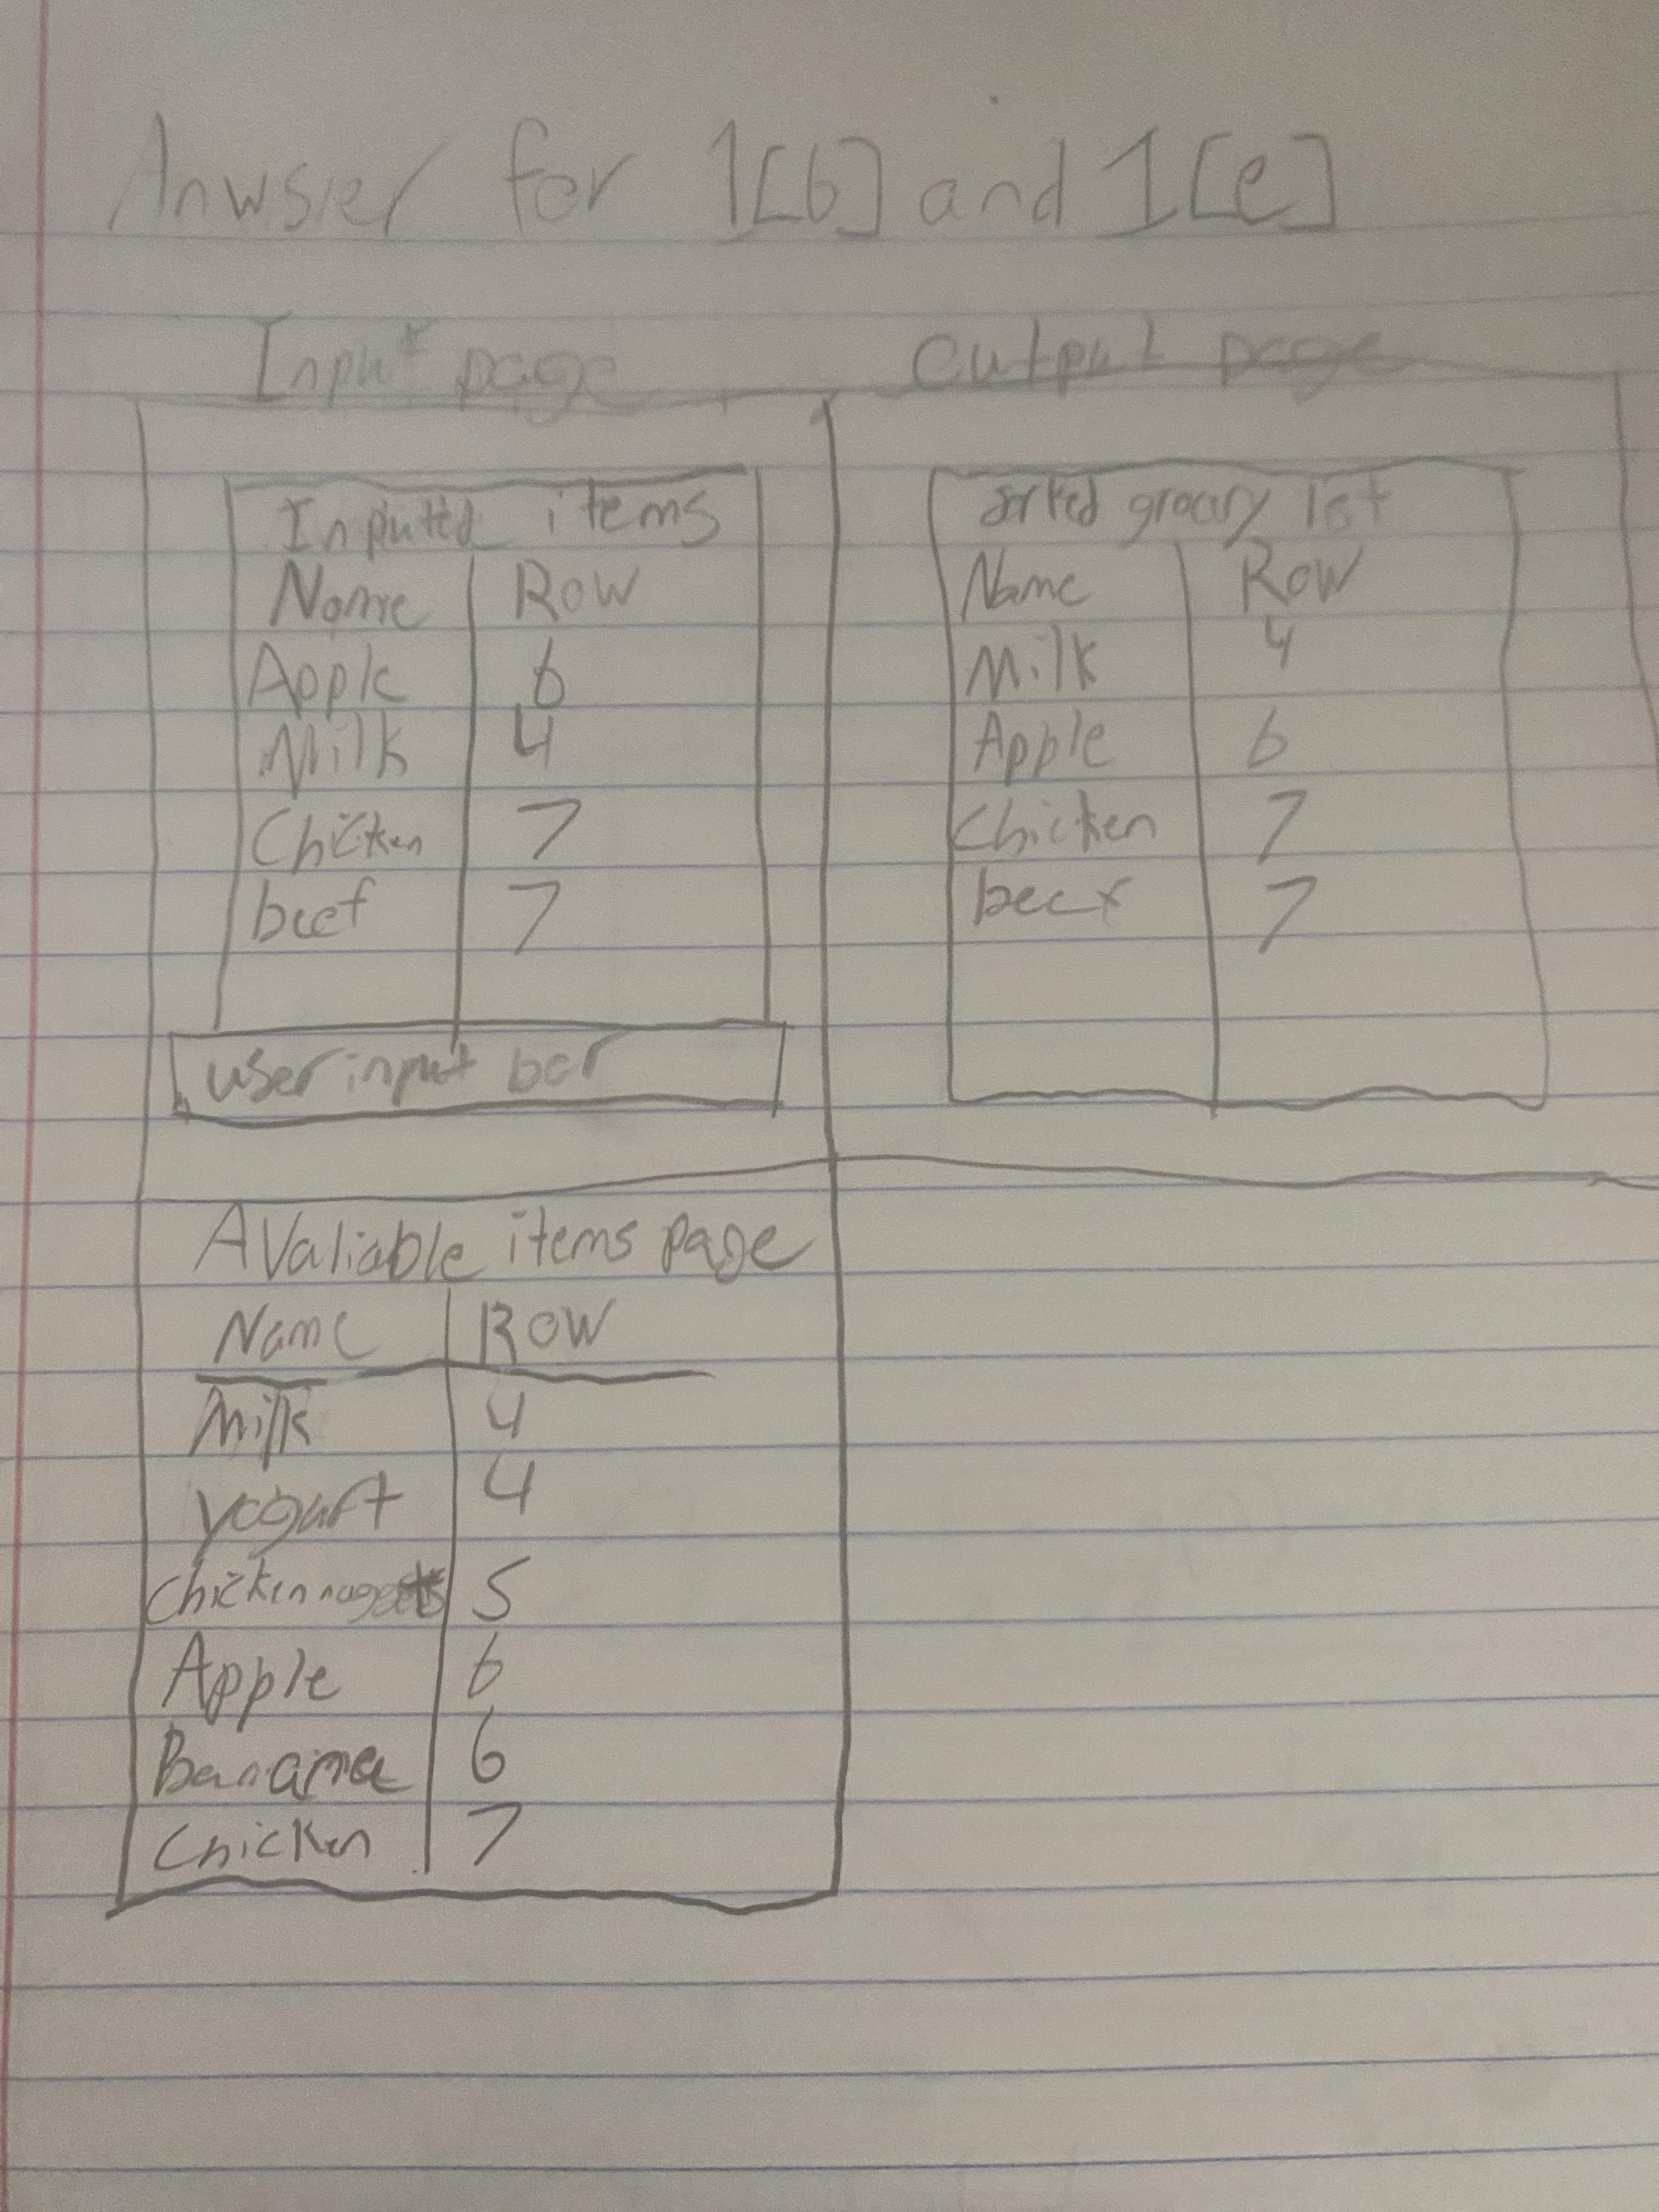 Anwsier for 1[b] and 1[e]
Input page
Inputted items
Name Row
Apple 6
Milk 4
Chicken 7
beef 7
user input bar
output page
sorted grocery list
Name Row
Milk 4
Apple 6
Chicken 7
beef 7
AValiable items page
Name Row
Milk 4
yogurt 4
Chicken nuggets 5
Apple 6
Banana 6
Chicken 7